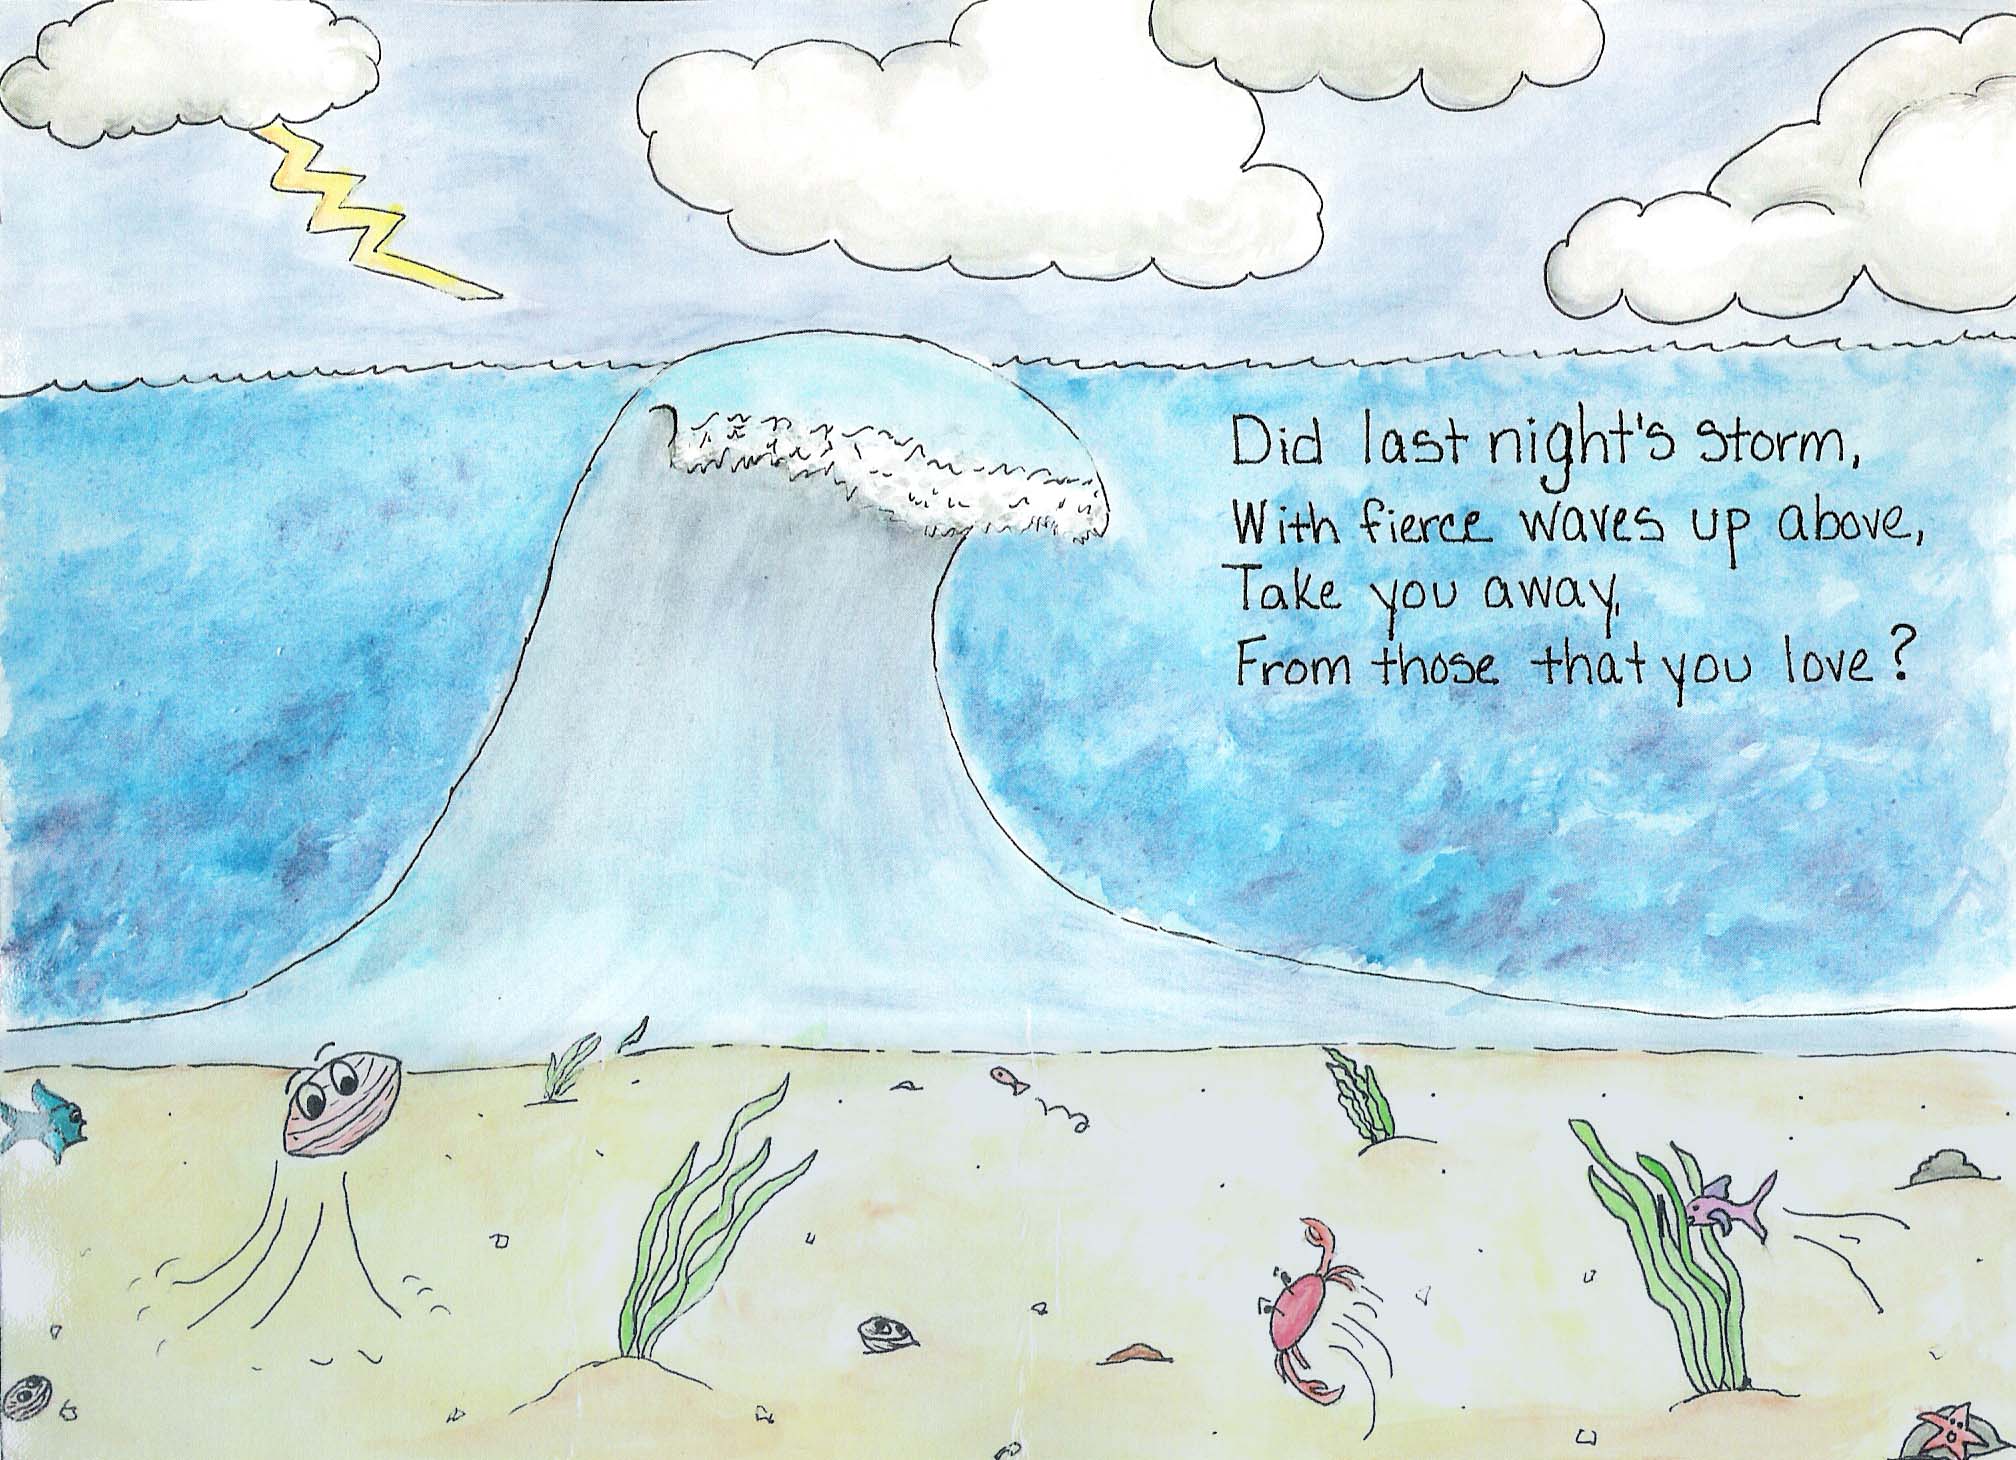 Did last night's storm,
With fierce waves up above,
Take you away,
From those that you love?